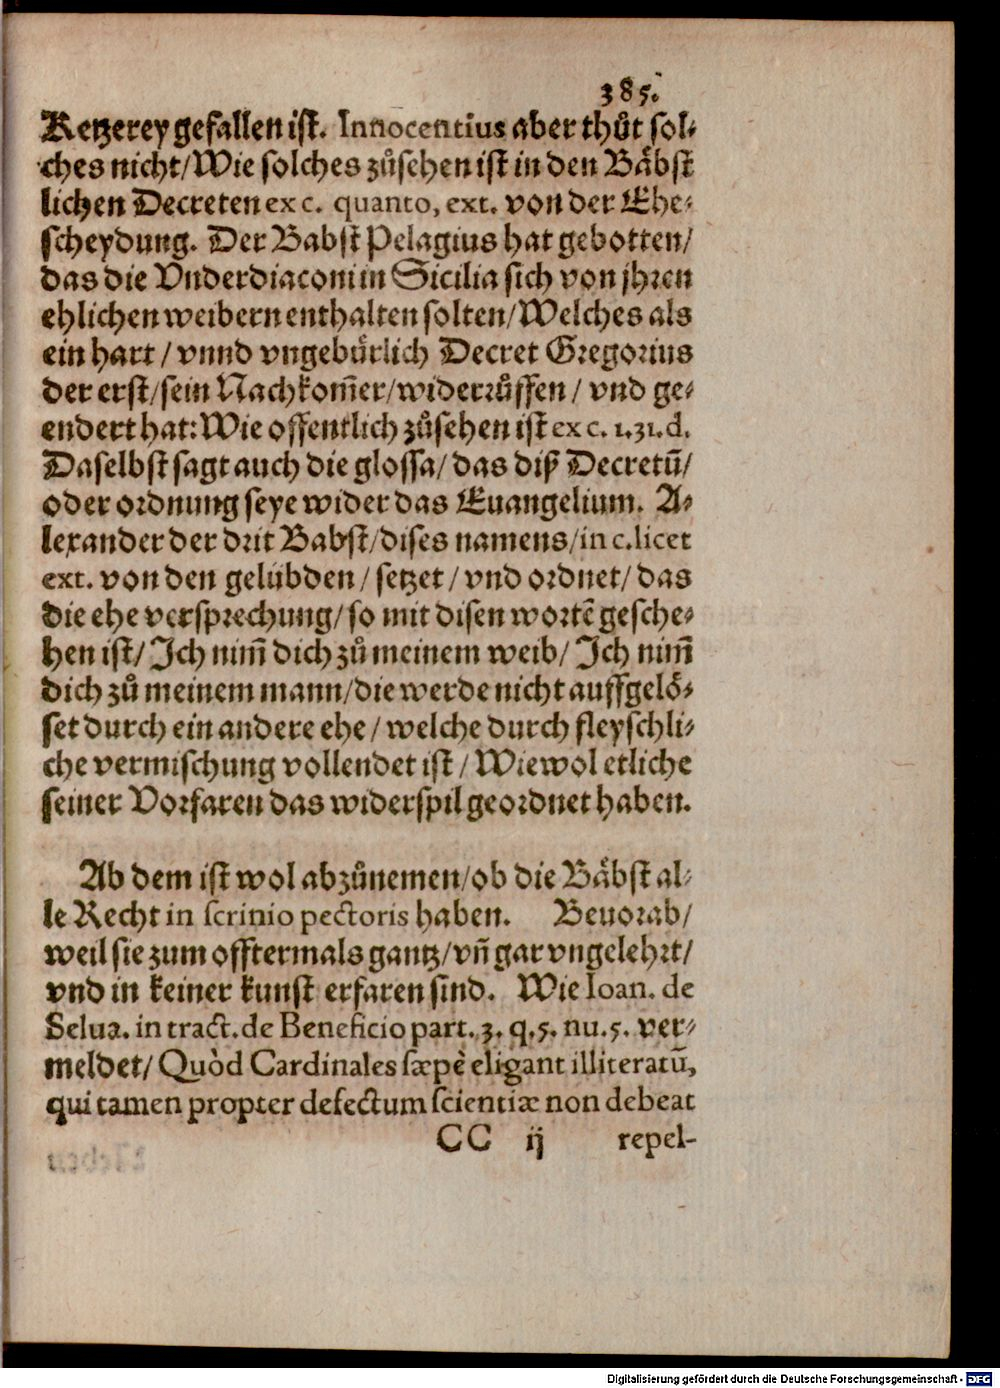 385.
Ketzerey gefallen ist. Innocentius aber thůt sol-
ches nicht/Wie solches zůsehen ist in den Bäbst
lichen Decreten ex c. quanto, ext. von der Ehe-
scheydung. Der Babst Pelagius hat gebotten/
das die Vnderdiaconi in Sicilia sich von jhren
ehlichen weibern enthalten solten/Welches als
ein hart/vnnd vngebürlich Decret Gregorius
der erst/sein Nachkom̃er/widerrůffen/vnd ge-
endert hat: Wie offentlich zůsehen ist ex c. 1. 31. d.
Daselbst sagt auch die glossa/das diß Decretũ/
oder ordnung seye wider das Euangelium. A-
lexander der drit Babst/dises namens/in c. licet
ext. von den gelübden/setzet/vnd ordnet/das
die ehe versprechung/so mit disen wortẽ gesche-
hen ist/Ich nim̃ dich zů meinem weib/Ich nim̃
dich zů meinem mann/die werde nicht auffgelö-
set durch ein andere ehe/welche durch fleyschli-
che vermischung vollendet ist/Wiewol etliche
seiner Vorfaren das widerspil geordnet haben.
Ab dem ist wol abzůnemen/ob die Bäbst al-
le Recht in scrinio pectoris haben. Beuorab/
weil sie zum offtermals gantz/vñ gar vngelehrt/
vnd in keiner kunst erfaren sind. Wie Ioan. de
Selua. in tract. de Beneficio part. 3. q. 5. nu. 5. ver-
meldet/Quòd Cardinales sæpè eligant illiteratũ,
qui tamen propter defectum scientiæ non debeat
CC ij repel-
Digitalisierung gefördert durch die Deutsche Forschungsgemeinschaft - DFG